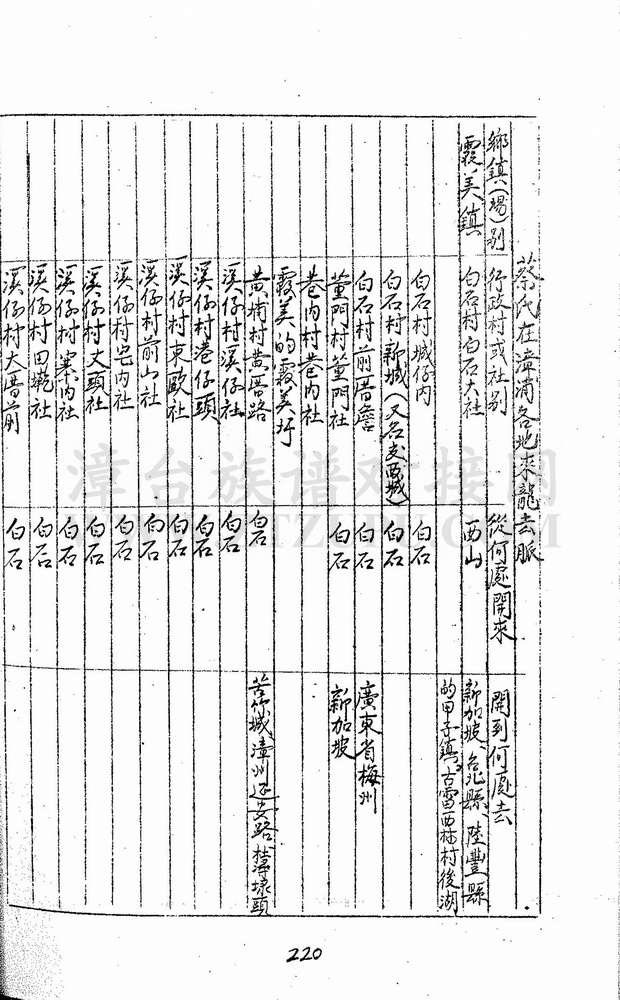 蔡氏在漳浦各地來龍去脈
鄉鎮(場)別 行政村或社別 從何處開來 開到何處去
霞美鎮 白石村白石大社 西山 新加坡、台北縣、陸豐縣
的甲子鎮、古雷西林村後湖
白石村城仔內 白石
白石村新城(又名支西城) 白石
白石村前厝詹 白石 廣東省梅州
董門村董門社 白石 新加坡
巷內村巷內社
霞美的霞美圩
黃埔村黃厝路 白石 苦竹城、漳州延安路
溪仔村溪仔社 白石
溪仔村港仔頭 白石
溪仔村東歐社 白石
溪仔村前山社 白石
溪仔村宅內社 白石
溪仔村丈頭社 白石
溪仔村寨內社 白石
溪仔村田乾社 白石
溪仔村大厝前 白石
220
漳台族谱对接网